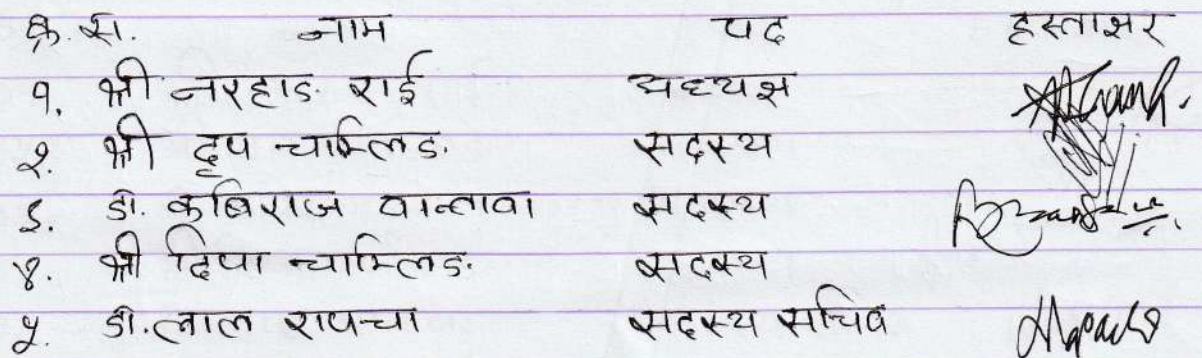 क्र. सं. नाम पद हस्ताक्षर
१. श्री नरहाङ राई अध्यक्ष
२. श्री दृप चाम्लिङ सदस्य
३. डा. कबिराज वान्तावा सदस्य
४. श्री दिपा चाम्लिङ सदस्य
५. डा. लाल रापचा सदस्य सचिव